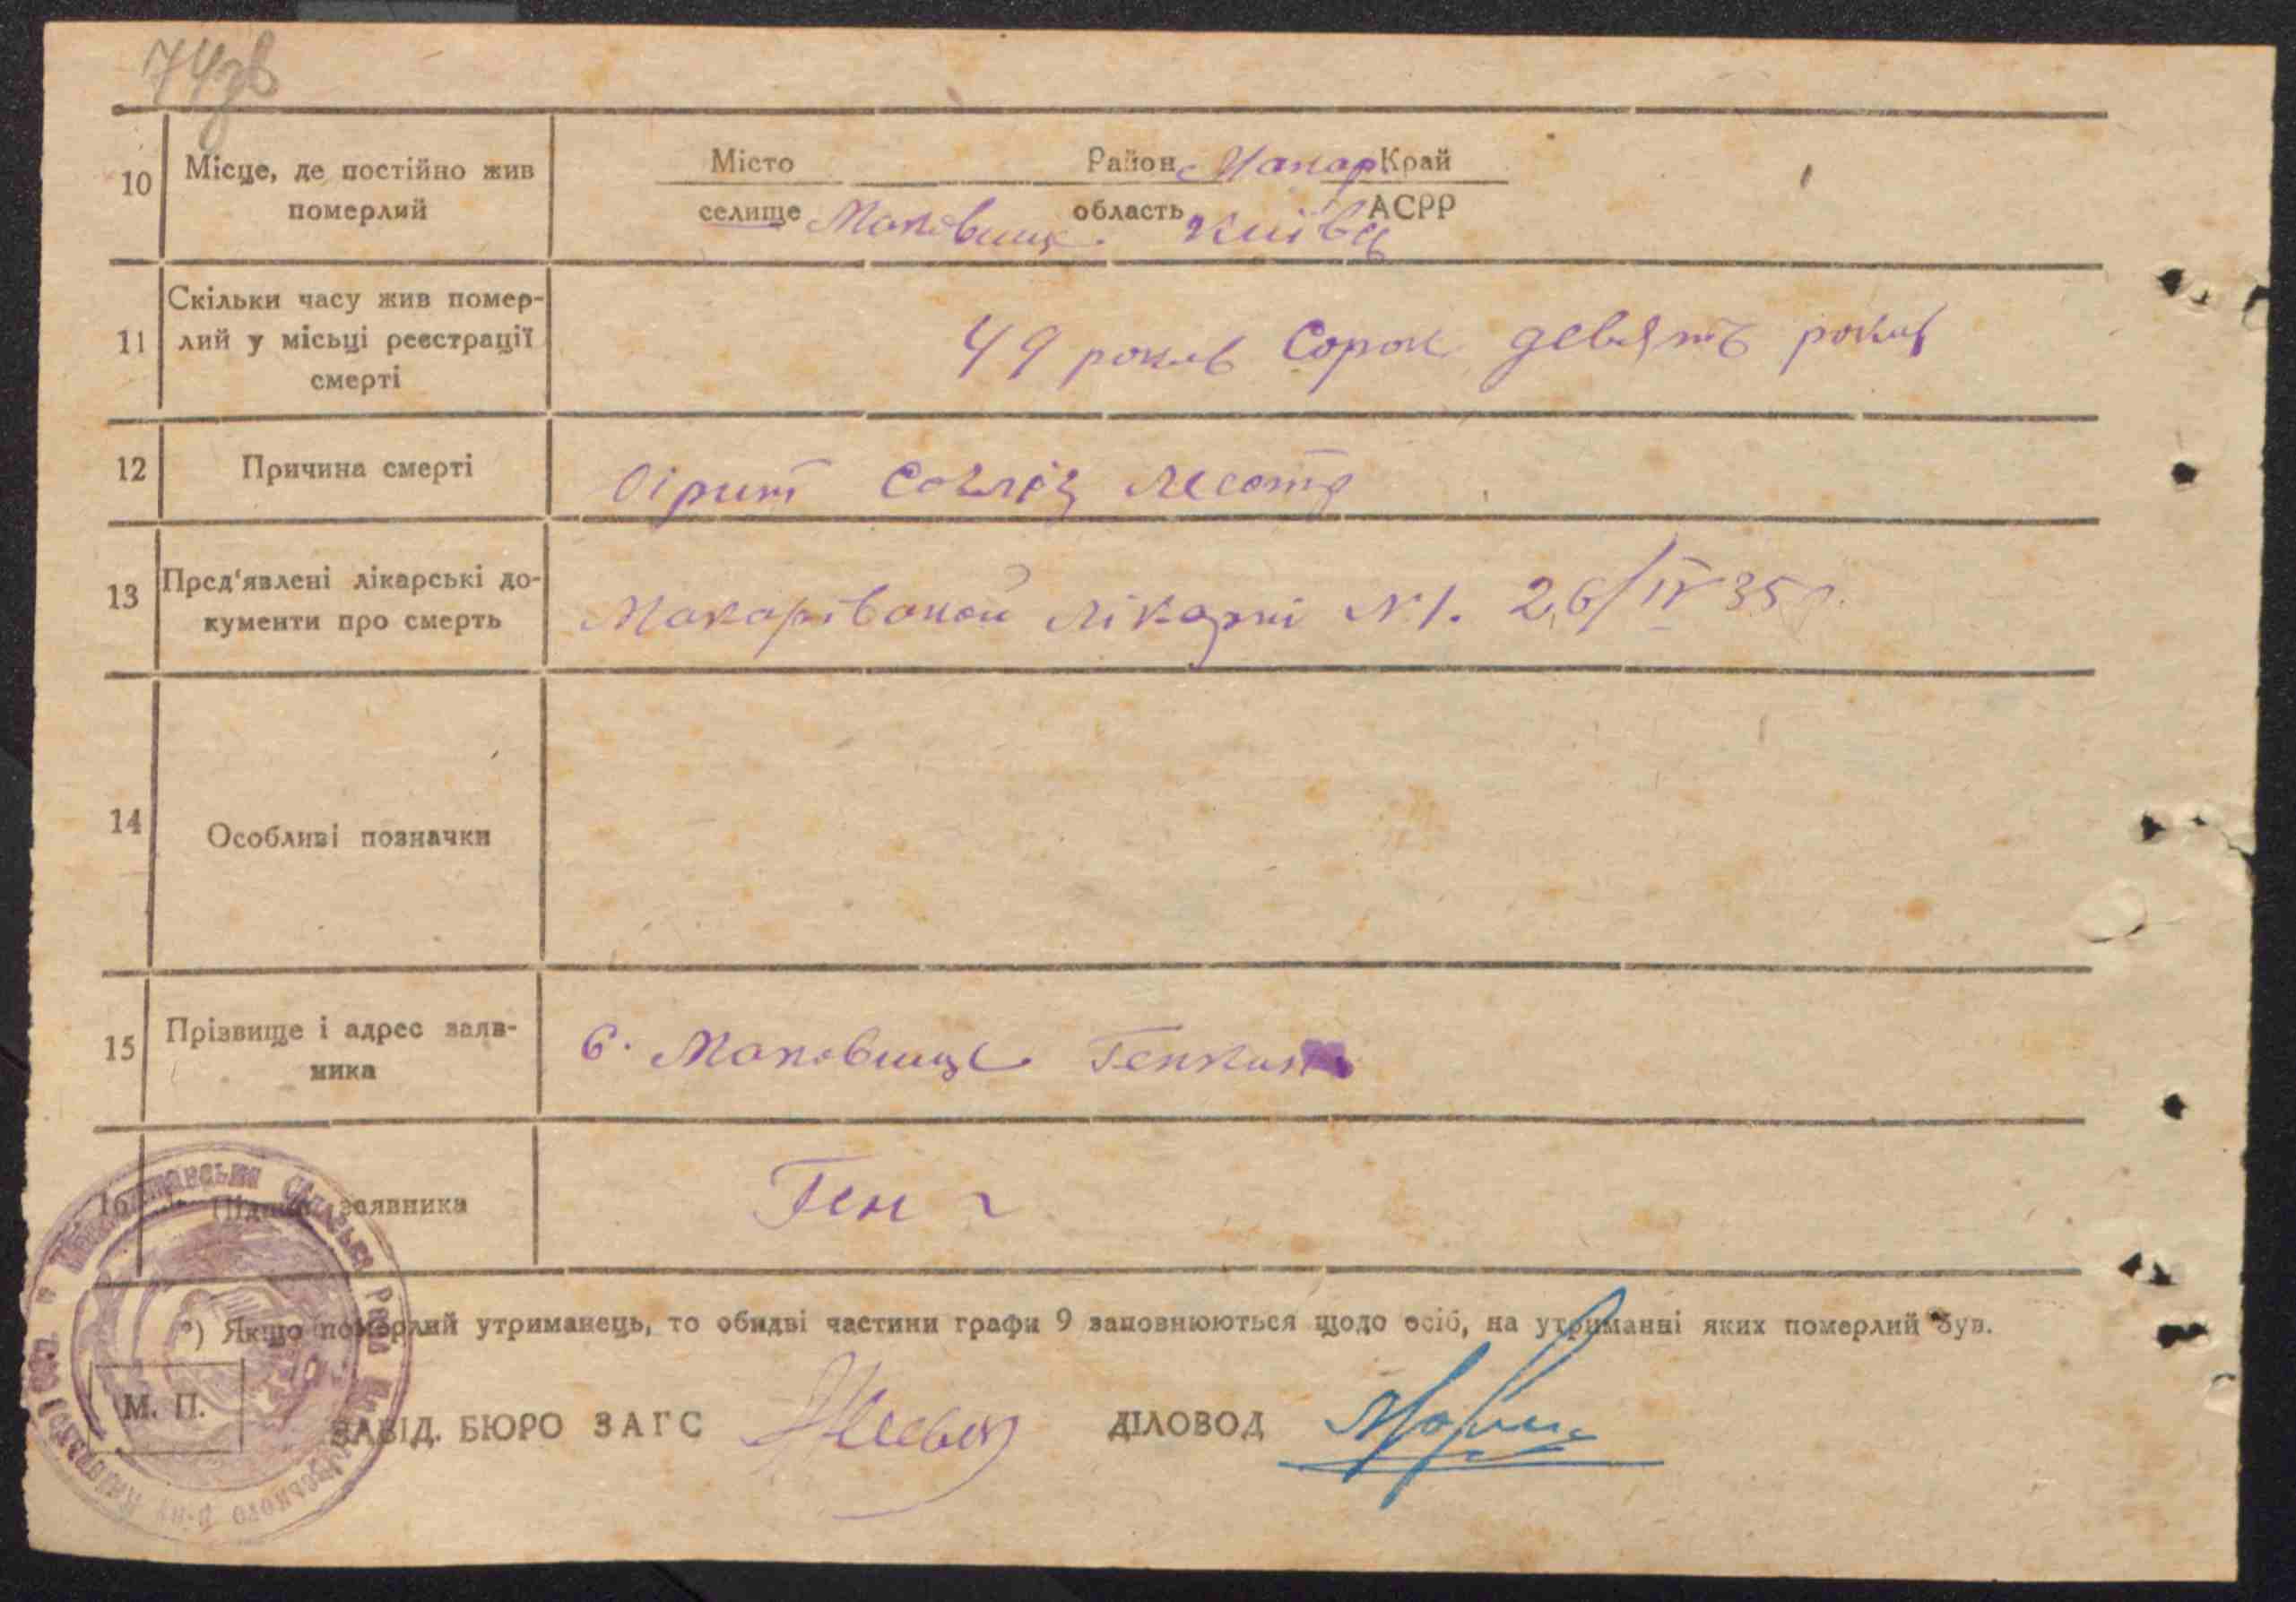 74зв
10 Місце, де постійно жив померлий
Місто Район Макар Край
селище Маковище область Київсь АСРР
11 Скільки часу жив помер-
лий у місьці реєстрації
смерті
49 років Сорок девять років
12 Причина смерті
13 Пред'явлені лікарські до-
кументи про смерть
Макарівскої лікарні №1. 26/IV 35 р.
14 Особливі позначки
15 Прізвище і адрес заяв-
ника
с. Маковище
16 Підпис заявника
Ген
*) Якщо померлий утриманець, то обидві частини графи 9 заповнюються щодо осіб, на утриманні яких померлий був.
М. П.
ЗАВІД. БЮРО ЗАГС
ДІЛОВОД